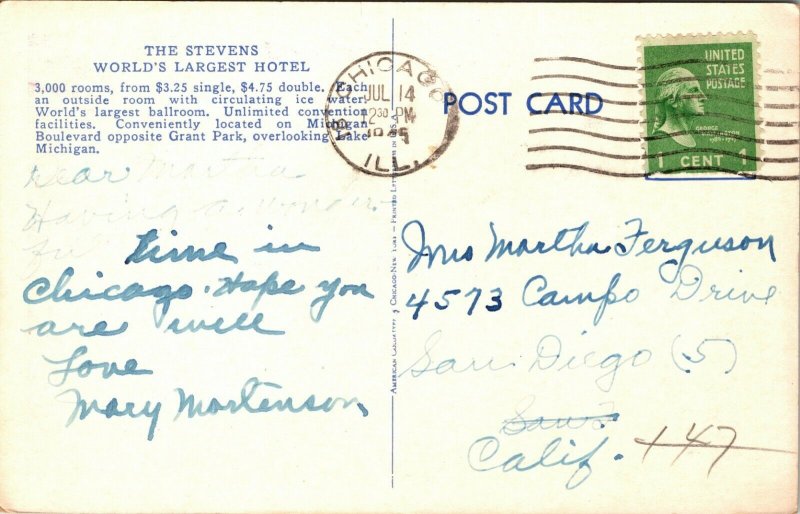 THE STEVENS
WORLD'S LARGEST HOTEL
3,000 rooms, from $3.25 single, $4.75 double. Each
an outside room with circulating ice water.
World's largest ballroom. Unlimited convention
facilities. Conveniently located on Michigan
Boulevard opposite Grant Park, overlooking Lake
Michigan.
Dear Martha
Having a wonder-
ful
time in
Chicago. Hope you
are well
Love
Mary Mortenson
CHICAGO
JUL 14
2 30 PM
1945
ILL.
POST CARD
UNITED
STATES
POSTAGE
GEORGE
WASHINGTON
1 CENT 1
Mrs Martha Ferguson
4573 Campo Drive
San Diego (5)
Calif. +47